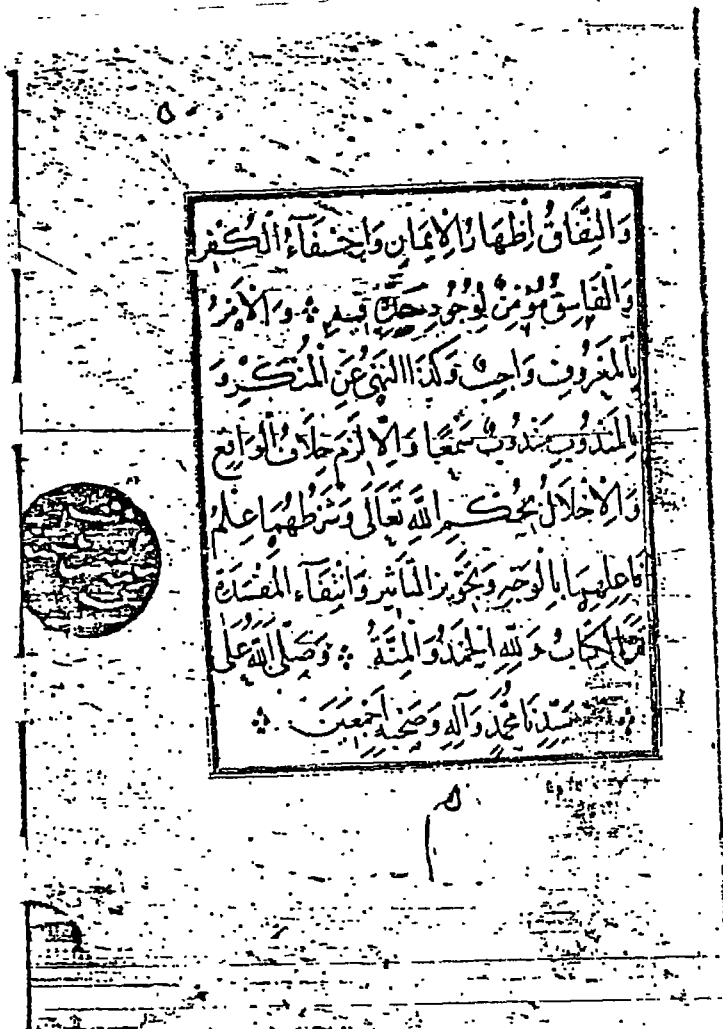 وَالنِّفَاقُ إِظْهَارُ الْإِيمَانِ وَإِخْفَآءُ الْكُفْرِ
وَالْفَاسِقُ مُؤْمِنٌ لِوُجُودِ حَدِّهِ فِيهِ وَالْأَمْرُ
بِالْمَعْرُوفِ وَاجِبٌ وَكَذَا النَّهْيُ عَنِ الْمُنْكَرِ وَ
بِالْمَنْدُوبِ مَنْدُوبٌ سَمْعًا وَإِلَّا لَزِمَ خِلَافُ الْوَاقِعِ
وَالْإِخْلَالُ بِحُكْمِ اللَّهِ تَعَالَى وَشَرْطُهُمَا عِلْمُ
فَاعِلِهِمَا بِالْوَجْهِ وَتَجْوِيزُ التَّأْثِيرِ وَانْتِفَآءُ الْمَفْسَدَةِ
الْكِتَابُ وَلِلَّهِ الْحَمْدُ وَالْمِنَّةُ وَصَلَّى اللَّهُ عَلَى
سَيِّدِنَا مُحَمَّدٍ وَآلِهِ وَصَحْبِهِ أَجْمَعِينَ